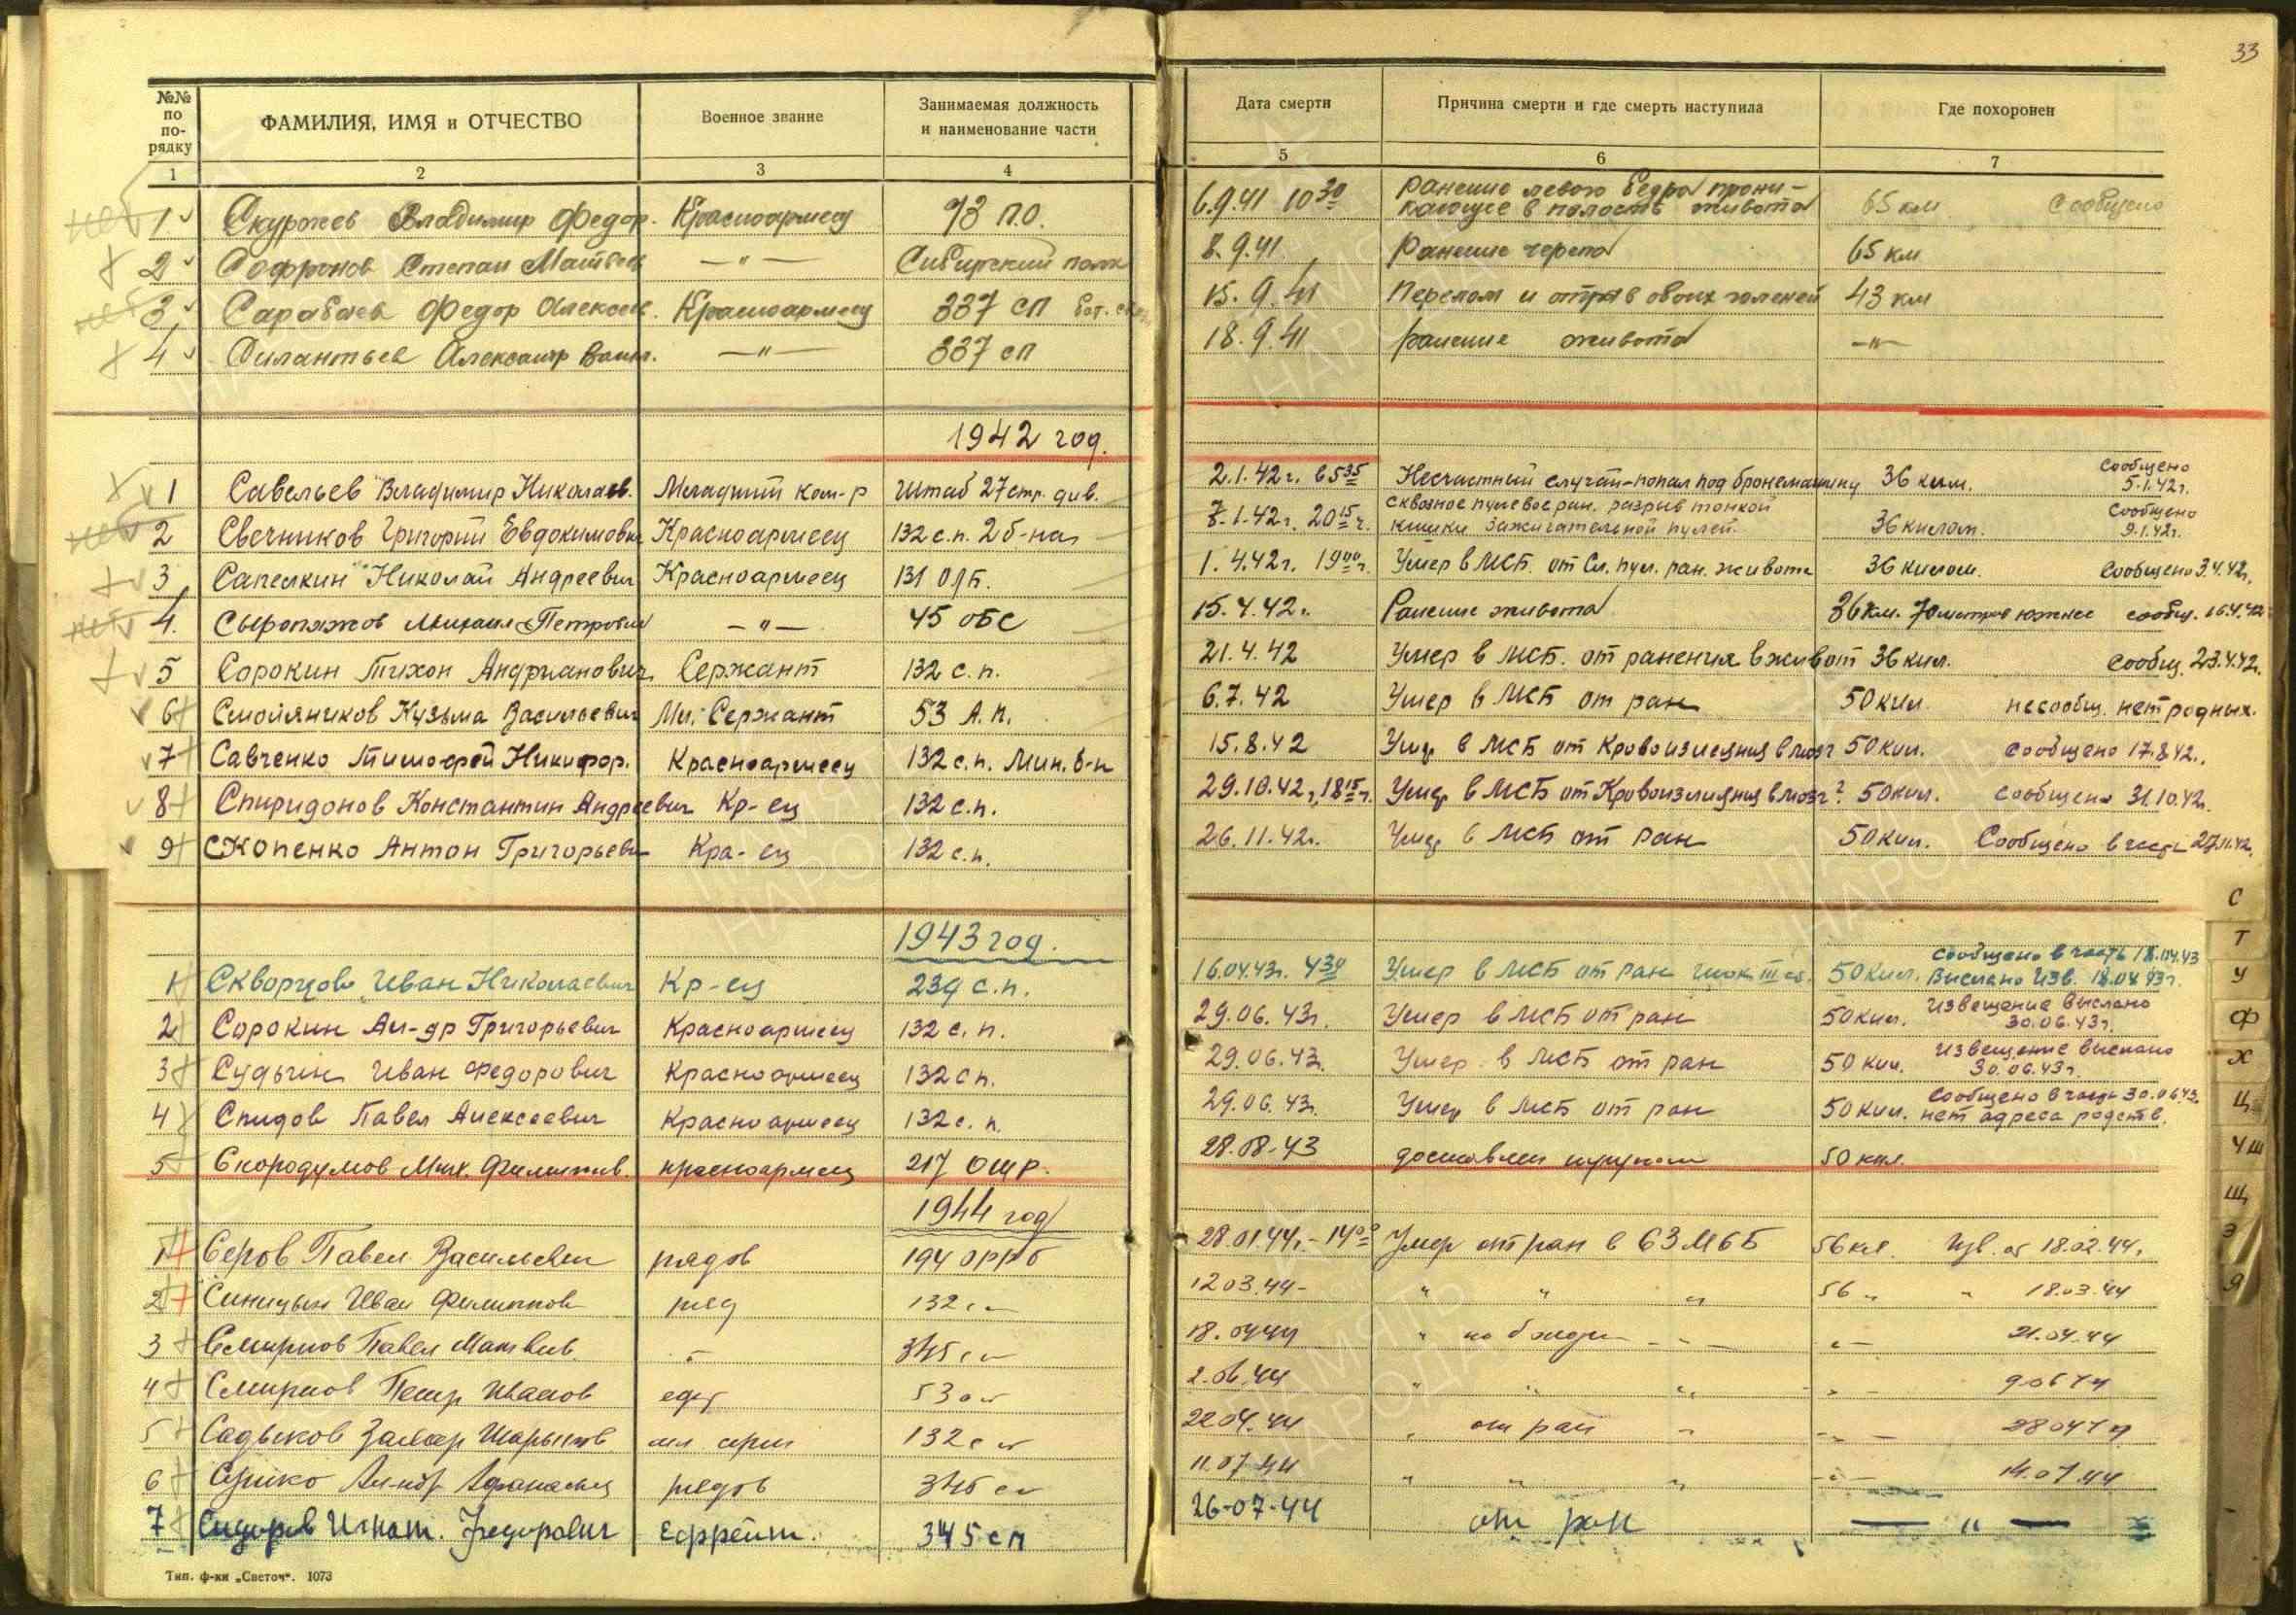 33
№№ по по-рядку ФАМИЛИЯ, ИМЯ и ОТЧЕСТВО Военное звание Занимаемая должность и наименование части Дата смерти Причина смерти и где смерть наступила Где похоронен
1 2 3 4 5 6 7
нет 1 Скуржев Владимир Федор. Красноармеец 93 П.О. 6.9.41 10 30 Ранение левого бедра прони-кающее в полость живота 65 км Сообщено
2 Софронов Степан Матвеев —"— Сибирский полк 8.9.41 Ранение черепа 65 км
нет 3 Сарабаев Федор Алексеев. Красноармеец 337 сп 15.9.41 Перелом и отрыв обоих голеней 43 км
4 Силантьев Александр —"— 337 сп 18.9.41 Ранение живота —"—
1942 год.
1 Савельев Владимир Николаев. Младший ком-р Штаб 27 стр. див. 2.1.42г. в 5 35 Несчастный случай-попал под бронемашину 36 килм. Сообщено 5.1.42г.
нет 2 Свечников Григорий Евдокимович Красноармеец 132 с.п. 2 б-на 7.1.42г. 20 15 ч. Сквозное пулевое ран. разрыв тонкой кишки зажигательной пулей. 36 килом. Сообщено 9.1.42г.
3 Сапелкин Николай Андреевич Красноармеец 131 ОЛБ. 1.4.42г. 19 00 ч. Умер в МСБ от Сл. пул. ран. живота 36 килом. Сообщено 3.4.42г.
нет 4. Сыропяжов Михаил Петрович —"— 45 обс 15.4.42г. Ранение живота 36 км. 70 метров южнее сообщ. 16.4.42
5 Сорокин Тихон Андрианович Сержант 132 с.п. 21.4.42 Умер в МСБ. от ранения в живот 36 кил. Сообщ. 23.4.42г.
6 Смольянчков Кузьма Васильевич Мл. Сержант 53 А.П. 6.7.42 Умер в МСБ от ран 50 кил. несообщ. нет родных.
7 Савченко Тимофей Никифор. Красноармеец 132 с.п. Мин. б-н 15.8.42 Умер в МСБ от Кровоизлияния в мозг 50 кил. Сообщено 17.8.42г.
8 Спиридонов Константин Андреевич Кр-ец 132 с.п. 29.10.42г, 18 15 ч. Умер в МСБ от Кровоизлияния в мозг? 50 кил. Сообщено 31.10.42г.
9 Скопенко Антон Григорьевич Кра-ец 132 с.п. 26.11.42г. Умер в МСБ от ран 50 кил. Сообщено в часть 27.11.42г.
1943 год.
1 Скворцов Иван Николаевич Кр-ец 239 с.п. 16.04.43г. 4 30 Умер в МСБ от ран шок III ст. 50 кил. Сообщено в часть 18.04.43 Выслано Изв. 18.04.43г.
2 Сорокин Ал-др Григорьевич Красноармеец 132 с.п. 29.06.43г. Умер в МСБ от ран 50 кил. Извещение выслано 30.06.43г.
3 Судьин Иван Федорович Красноармеец 132 сп. 29.06.43г. Умер в МСБ от ран 50 кил. Извещение выслано 30.06.43г.
4 Спидов Павел Алексеевич Красноармеец 132 с.п. 29.06.43г. Умер в МСБ от ран 50 кил. Сообщено в часть 30.06.43. нет адреса родств.
5 Скородумов Мих. Филиппов. красноармеец 217 ОШР. 28.08.43 доставлен трупом 50 кил.
1944 год
1 Серов Павел Васильевич рядов 194 оррб 28.01.44г.-14 00 Умер от ран в 63 МСБ 56 кл. Изв. от 18.02.44г.
2 Синицын Иван Филиппов ряд 132 сп 12.03.44- " " " 56 " " 18.03.44
3 Смирнов Павел Матвеев. " 345 сп 18.04.44 " " 21.04.44
4 Смирнов Петр Иванов 53 2.06.44 " " " 9.06.44
5 Садыков мл серж 132 сп 22.04.44 " от ран " " 28.04.44
6 рядов 345 сп 11.07.44 " " " " 14.07.44
7 Сидоров Игнат. Федорович Ефрейт. 345 сп 26-07-44 от ран — " —
С
Т
У
Ф
Х
Ц
Ч Ш
Щ
Э
Я
Тип. ф-ки „Светоч". 1073